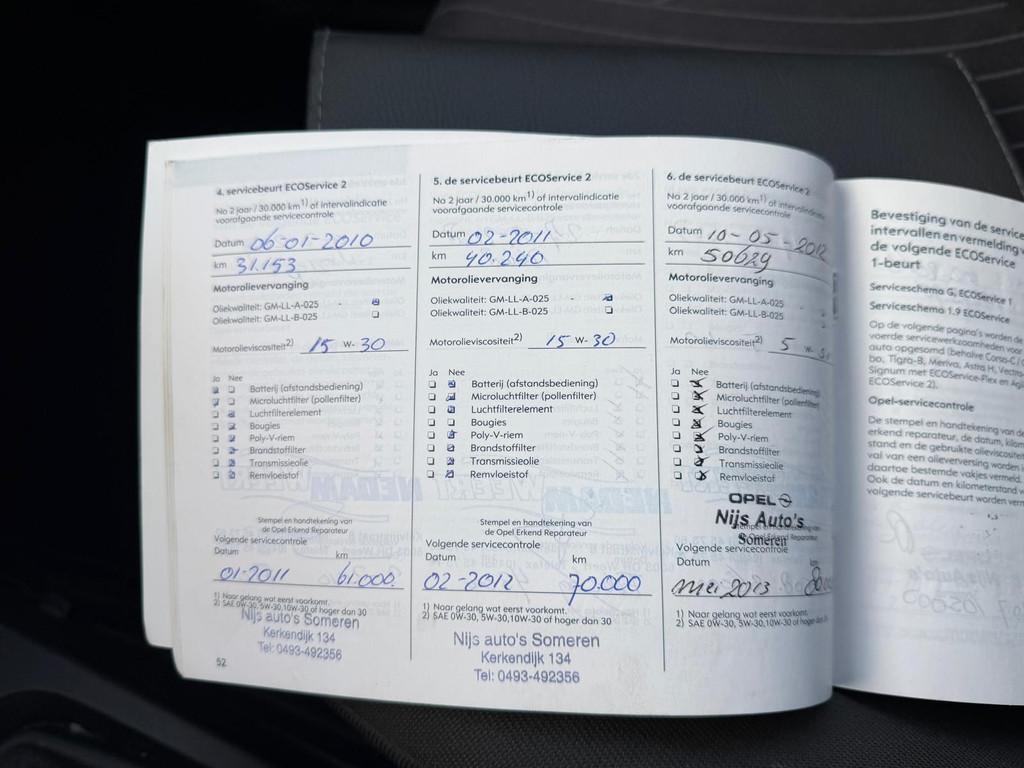 4. servicebeurt ECOService 2
Na 2 jaar / 30.000 km1) of intervalindicatie
voorafgaande servicecontrole
Datum 06-01-2010
km 31.153
Motorolievervanging
Oliekwaliteit: GM-LL-A-025
Oliekwaliteit: GM-LL-B-025
Motorolieviscositeit2) 15 W- 30
Ja Nee
Batterij (afstandsbediening)
Microluchtfilter (pollenfilter)
Luchtfilterelement
Bougies
Poly-V-riem
Brandstoffilter
Transmissieolie
Remvloeistof
Stempel en handtekening van
de Opel Erkend Reparateur
Volgende servicecontrole
Datum km
01-2011 61.000
1) Naar gelang wat eerst voorkomt.
2) SAE 0W-30, 5W-30,10W-30 of hoger dan 30
Nijs auto's Someren
Kerkendijk 134
Tel: 0493-492356
52
5. de servicebeurt ECOService 2
Na 2 jaar / 30.000 km1) of intervalindicatie
voorafgaande servicecontrole
Datum 02-2011
km 40.240
Motorolievervanging
Oliekwaliteit: GM-LL-A-025
Oliekwaliteit: GM-LL-B-025
Motorolieviscositeit2) 15 W- 30
Ja Nee
Batterij (afstandsbediening)
Microluchtfilter (pollenfilter)
Luchtfilterelement
Bougies
Poly-V-riem
Brandstoffilter
Transmissieolie
Remvloeistof
Stempel en handtekening van
de Opel Erkend Reparateur
Volgende servicecontrole
Datum km
02-2012 70.000
1) Naar gelang wat eerst voorkomt.
2) SAE 0W-30, 5W-30,10W-30 of hoger dan 30
Nijs auto's Someren
Kerkendijk 134
Tel: 0493-492356
6. de servicebeurt ECOService 2
Na 2 jaar / 30.000 km1) of intervalindicatie
voorafgaande servicecontrole
Datum 10-05-2012
km 50629
Motorolievervanging
Oliekwaliteit: GM-LL-A-025
Oliekwaliteit: GM-LL-B-025
Motorolieviscositeit2) 5 W-
Ja Nee
Batterij (afstandsbediening)
Microluchtfilter (pollenfilter)
Luchtfilterelement
Bougies
Poly-V-riem
Brandstoffilter
Transmissieolie
Remvloeistof
OPEL
Nijs Auto's
Someren
Volgende servicecontrole
Datum
mei 2013
1) Naar gelang wat eerst voorkomt.
2) SAE 0W-30, 5W-30,10W-30 of hoger dan
Bevestiging van de service
intervallen en vermelding
de volgende ECOService
1-beurt
Serviceschema G, ECOService 1
Serviceschema 1.9 ECOService
Op de volgende pagina's worden de
voerde servicewerkzaamheden voor
auto opgesomd (behalve Corsa-C /
bo, Tigra-B, Meriva, Astra H, Vectra
Signum met ECOService-Flex en Agi
ECOService 2).
Opel-servicecontrole
De stempel en handtekening van de
erkend reparateur, de datum, kilom
stand en de gebruikte olieviscositeit
val van een olieverversing worden
daartoe bestemde vakjes vermeld.
Ook de datum en kilometerstand v
volgende servicebeurt worden verm